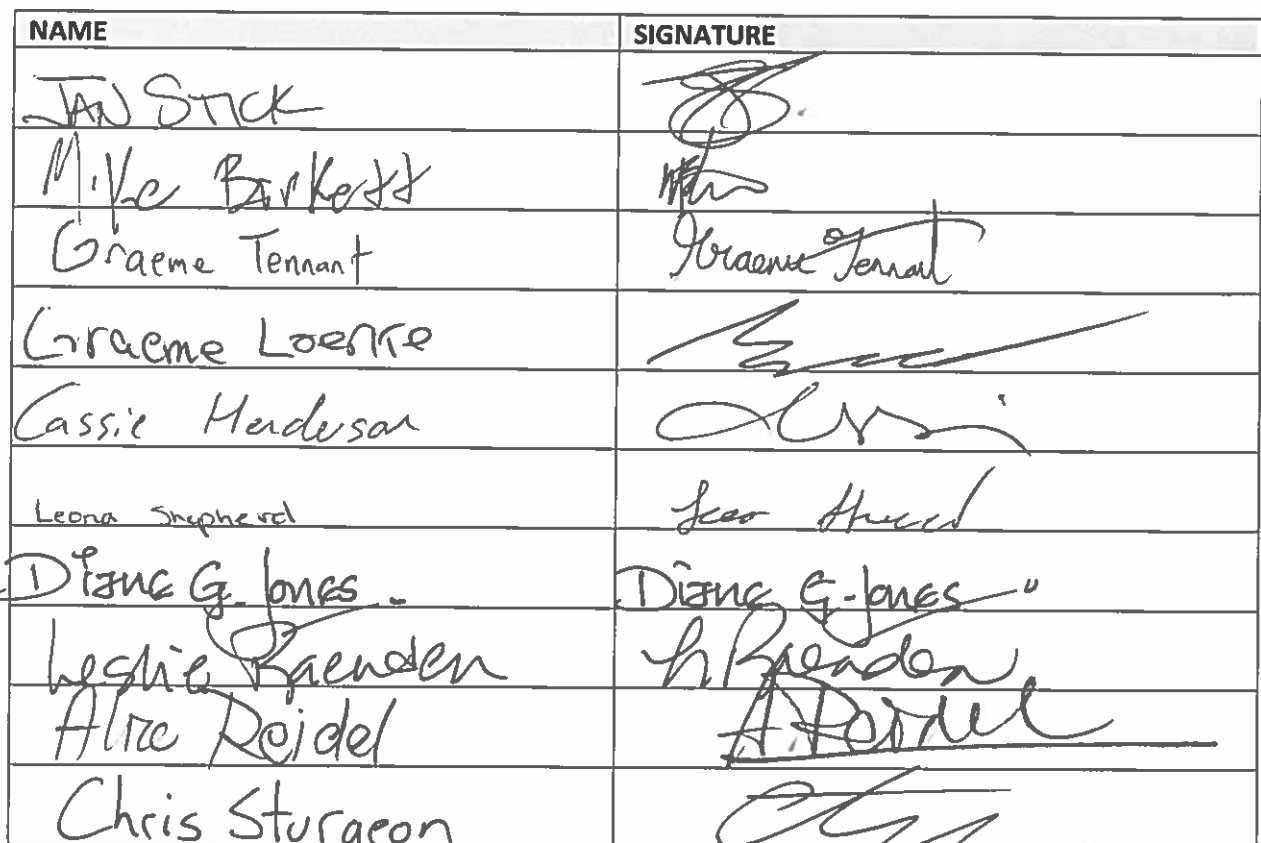 NAME SIGNATURE
JAN STICK
Mike Birkett
Graeme Tennant Graeme Tennant
Graeme Loenke
Cassie Henderson
Leona Shepherd
Diane G. Jones. Diane G. Jones
Leslie Baenden L Baenden
Alice Reidel A Reidel
Chris Sturgeon